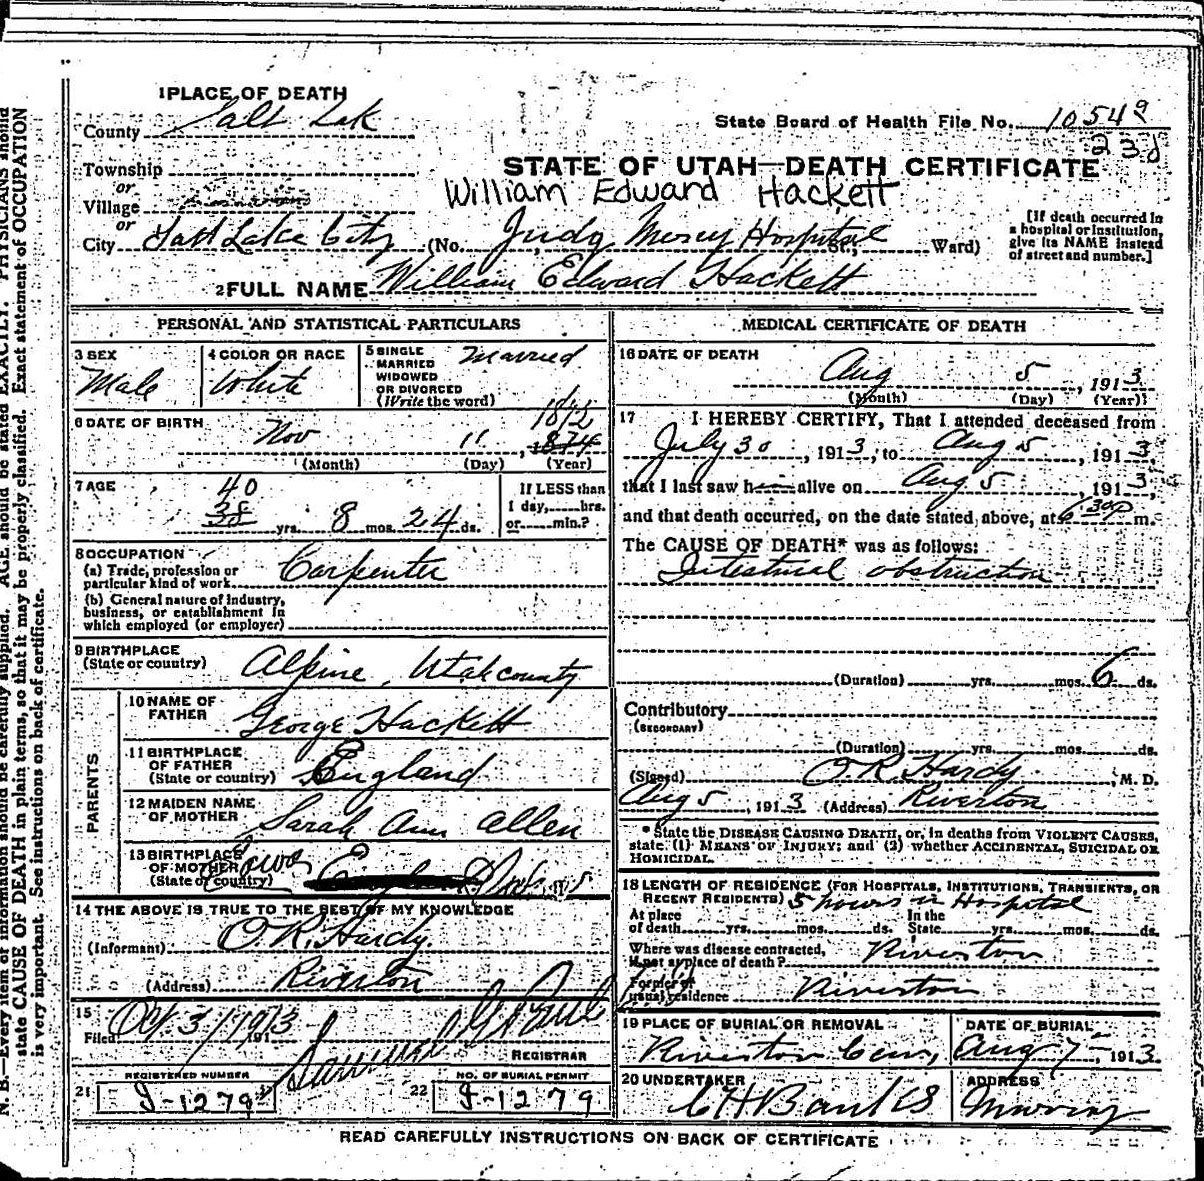 1 PLACE OF DEATH
County Salt Lak
State Board of Health File No. 10549
238
Township
or
Village
or
STATE OF UTAH—DEATH CERTIFICATE
William Edward Hackett
City Salt Lake City (No. Judg Mercy Hospital St.; Ward)
[If death occurred in a hospital or institution, give its NAME instead of street and number.]
2 FULL NAME William Edward Hackett
PERSONAL AND STATISTICAL PARTICULARS
3 SEX
Male
4 COLOR OR RACE
White
5 SINGLE MARRIED WIDOWED OR DIVORCED (Write the word)
Married
6 DATE OF BIRTH
Nov 11, 1872 1874
(Month) (Day) (Year)
7 AGE
40
38 yrs. 8 mos. 24 ds.
If LESS than 1 day, hrs. or min.?
8 OCCUPATION
(a) Trade, profession or particular kind of work Carpenter
(b) General nature of industry, business, or establishment in which employed (or employer)
9 BIRTHPLACE
(State or country) Alpine, Utah county
PARENTS
10 NAME OF FATHER George Hackett
11 BIRTHPLACE OF FATHER (State or country) England
12 MAIDEN NAME OF MOTHER Sarah Ann Allen
13 BIRTHPLACE OF MOTHER (State or country) Iowa
14 THE ABOVE IS TRUE TO THE BEST OF MY KNOWLEDGE
(Informant) O.R. Hardy
(Address) Riverton
15
Filed Oct 3/1913 191
Samuel G Paul
REGISTRAR
REGISTERED NUMBER
21 J-1279
NO. OF BURIAL PERMIT
22 J-1279
MEDICAL CERTIFICATE OF DEATH
16 DATE OF DEATH
Aug 5, 1913
(Month) (Day) (Year)
17 I HEREBY CERTIFY, That I attended deceased from
July 30, 1913, to Aug 5, 1913,
that I last saw h alive on Aug 5, 1913,
and that death occurred, on the date stated above, at 6 30P m.
The CAUSE OF DEATH* was as follows:
Intestinal obstruction
(Duration) yrs. mos. 6 ds.
Contributory
(SECONDARY)
(Duration) yrs. mos. ds.
(Signed) O.R. Hardy, M. D.
Aug 5, 1913 (Address) Riverton
* State the DISEASE CAUSING DEATH, or, in deaths from VIOLENT CAUSES,
state (1) MEANS OF INJURY; and (2) whether ACCIDENTAL, SUICIDAL OR
HOMICIDAL.
18 LENGTH OF RESIDENCE (FOR HOSPITALS, INSTITUTIONS, TRANSIENTS, OR
RECENT RESIDENTS) 5 hours in Hospital
At place of death yrs. mos. ds. In the State yrs. mos. ds.
Where was disease contracted, if not at place of death? Riverton
Former or usual residence Riverton
19 PLACE OF BURIAL OR REMOVAL
Riverton Cem,
DATE OF BURIAL
Aug 7, 1913
20 UNDERTAKER
C H Banks
ADDRESS
Murray
READ CAREFULLY INSTRUCTIONS ON BACK OF CERTIFICATE
N. B.—Every item of information should be carefully supplied. AGE should be stated EXACTLY. PHYSICIANS should
state CAUSE OF DEATH in plain terms, so that it may be properly classified. Exact statement of OCCUPATION
is very important. See instructions on back of certificate.